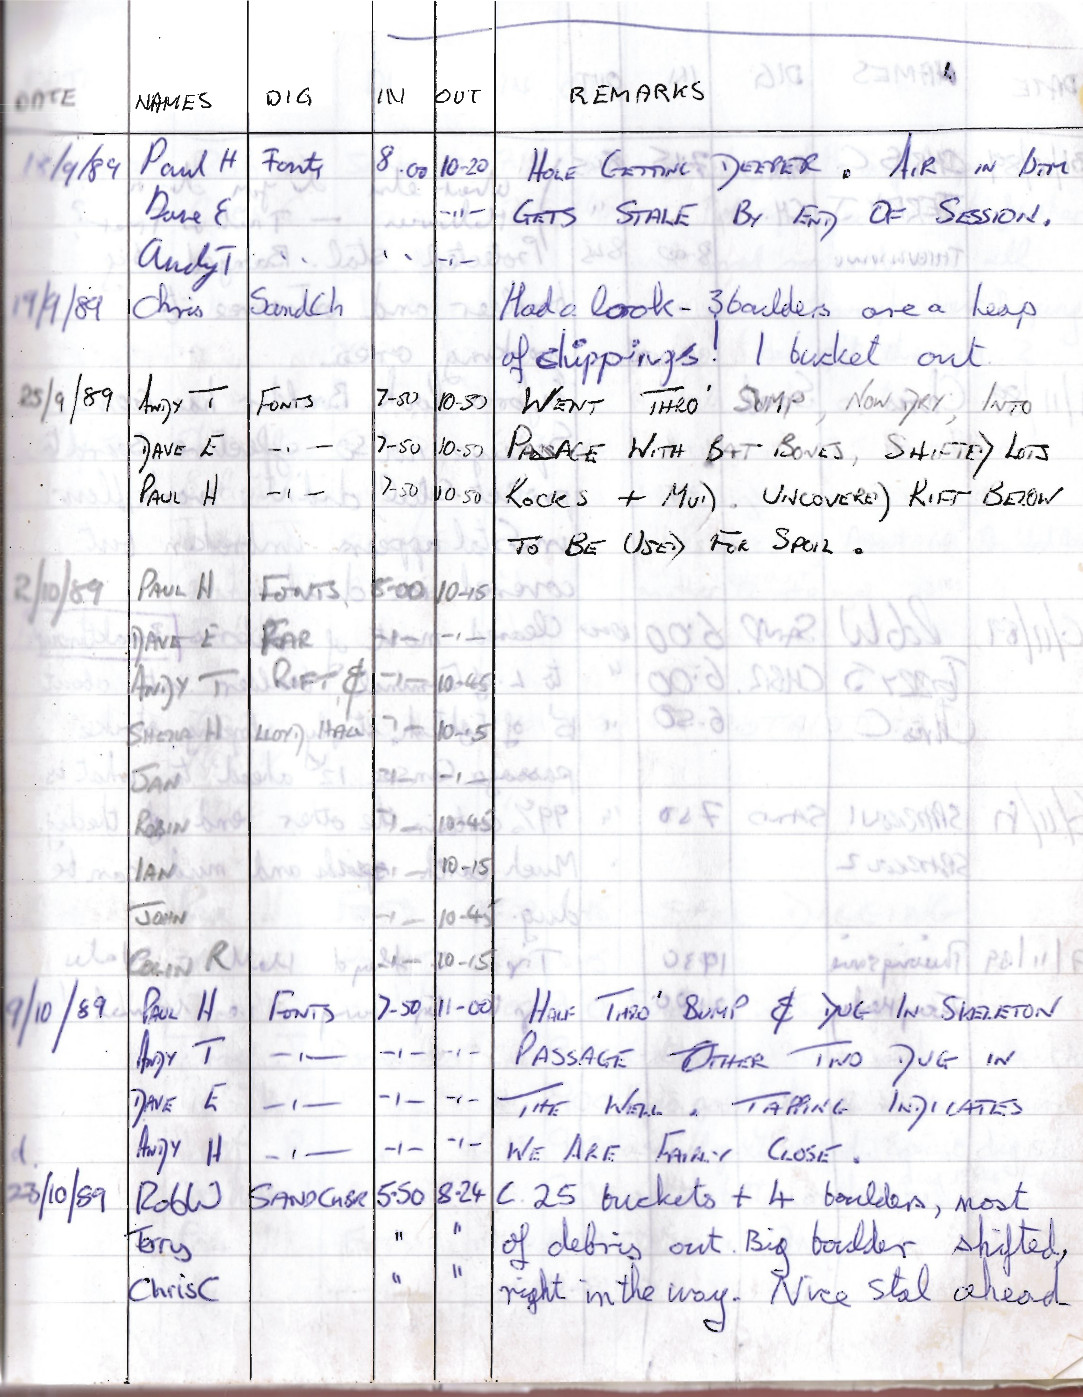 DATE NAMES DIG IN OUT REMARKS
18/9/89 Paul H Fonts 8.00 10-20 HOLE GETTING DEEPER. AIR IN DIM
Dave E -"- GETS STALE BY END OF SESSION.
Andy T " " -"-
19/9/89 Chris SandCh Had a look - 3 boulders are a heap
of chippings! 1 bucket out
25/9/89 ANDY T FONTS 7-50 10-50 WENT THRO' SUMP, NOW DRY, INTO
DAVE E -"- 7-50 10-50 PASSAGE WITH BAT BONES, SHIFTED LOTS
PAUL H -"- 7-50 10-50 ROCKS + MUD. UNCOVERED RIFT BELOW
TO BE USED FOR SPOIL.
2/10/89 PAUL H FONTS, 8-00 10-15
DAVE E FAR -"- -"-
ANDY T RIFT, & -"- 10-45
SHEILA H LLOYD HALL -"- 10-15
JAN -"- -"-
ROBIN -"- 10-45
IAN -"- 10-15
JOHN -"- 10-45
COLIN R -"- 10-15
9/10/89 PAUL H FONTS 7-50 11-00 HALF THRO' BUMP & DUG IN SKELETON
ANDY T -"- -"- -"- PASSAGE OTHER TWO DUG IN
DAVE E -"- -"- -"- THE WELL. TAPPING INDICATES
ANDY H -"- -"- -"- WE ARE FAIRLY CLOSE.
23/10/89 RobW SANDCHBR 5-50 8-24 C. 25 buckets + 4 boulders, most
Terry " " of debris out. Big boulder shifted,
ChrisC " " right in the way. Nice stal ahead